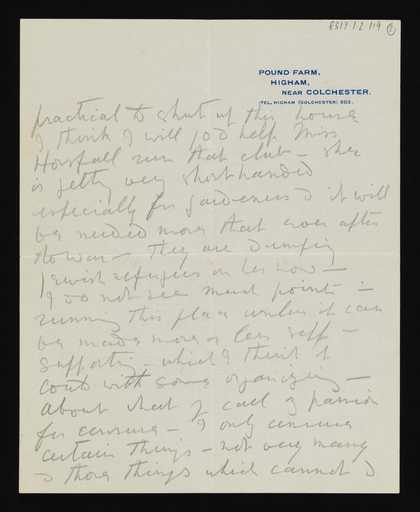 8817.1.2.119 2
POUND FARM,
HIGHAM,
NEAR COLCHESTER.
TEL. HIGHAM (COLCHESTER) 202.
practical to shut up this house
I think I will go & help Miss
Horsfall run that club – she
is getting very shorthanded
especially for Gardeners & it will
be needed more than ever after
the War – they are dumping
Jewish refugees on her now –
I do not see much point in
running this place unless it can
be made more or less self –
supporting – which I think it
could with some organizing –
about what you call my passion
for censure – I only censure
certain things – not very many
& those things which cannot &